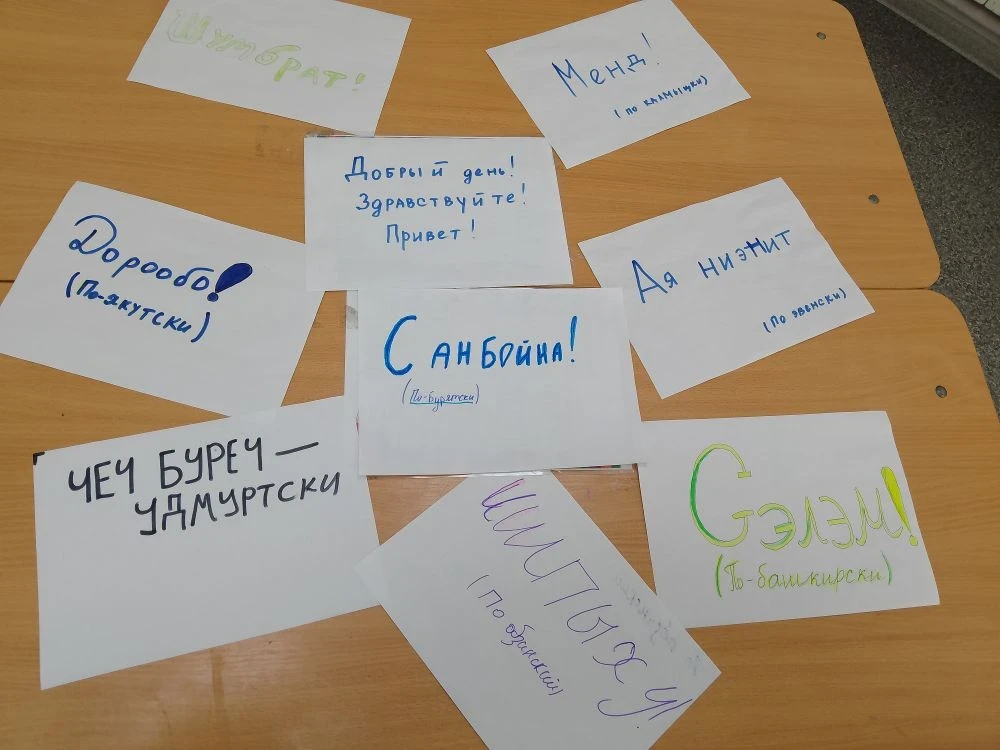 Шумбрат!
Менд!
(по калмыцки)
Добрый день!
Здравствуйте!
Привет!
Дорообо!
(По-якутски)
Ая ниэнит
(По эвенски)
Санбойна!
(По-бурятски)
ЧЕЧ БУРЕЧ —
УДМУРТСКИ
Сэлэм!
(По-башкирски)
Шшпыху!
(По абзински)